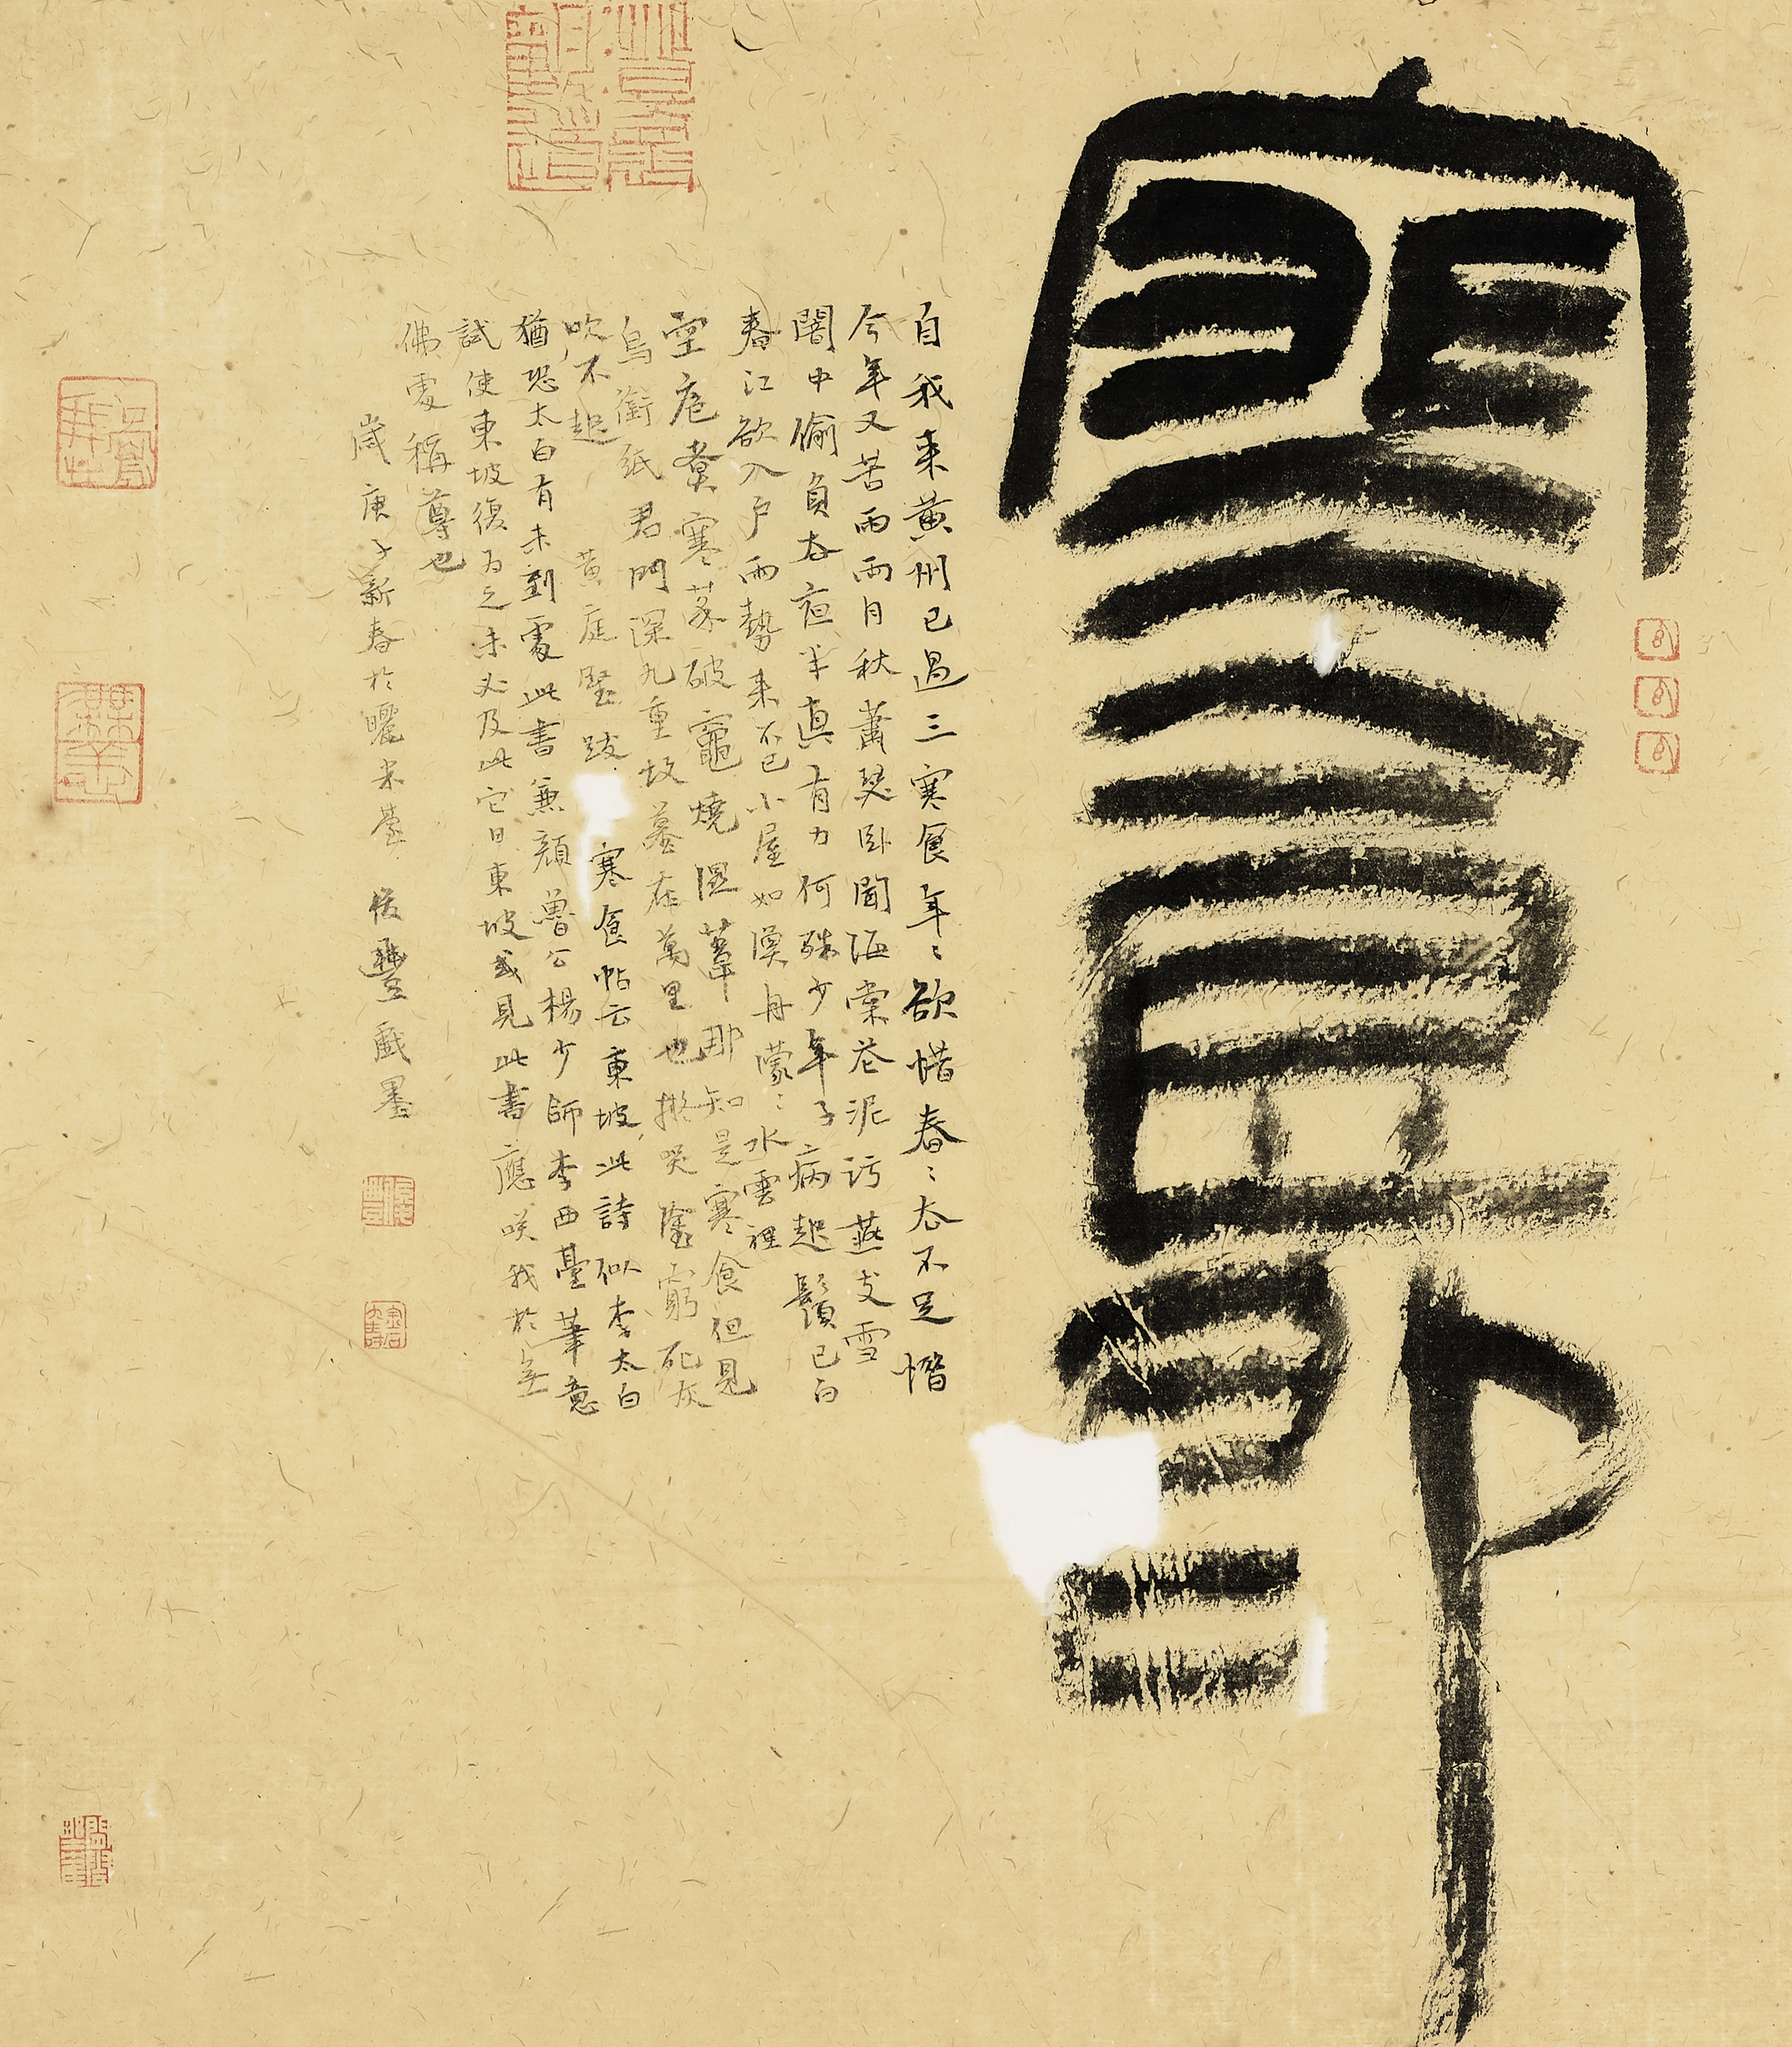 自我来黄州已過三寒食年〻欲惜春〻去不足惜
今年又苦雨兩月秋蕭瑟卧聞海棠花泥污燕支雪
闇中偷負去夜半真有力何殊少年子病起鬚已白
春江欲入户雨勢来不已小屋如漁舟濛〻水雲裡
空庖煮寒菜破竈燒濕葦那知是寒食但見
烏銜紙君門深九重墳墓在萬里也擬哭塗窮死灰
吹不起 黄庭堅跋 寒食帖云東坡此詩似李太白
猶恐太白有未到處此書兼顔魯公楊少師李西臺筆意
試使東坡復為之未必及此它日東坡或見此書應咲我於無
佛處稱尊也
歲庚子新春於曬米臺 豐戲墨